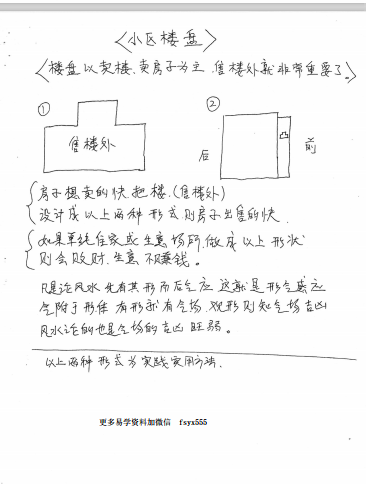 〈小区楼盘〉
〈楼盘以卖楼.卖房子为主.售楼外就非常重要了。〉
① ②
售楼外
后 凸 前
房子想卖的快把楼.(售楼外)
设计成以上两种形式.则房子出售的快.
如果单纯住家或生意场所.做成以上形状
则会败财.生意不赚钱。
凡是论风水先有其形而后气应 这就是形气感应
气附于形体 有形就有气场.观形则知气场吉凶
风水论的也是气场的吉凶旺弱。
以上两种形式为实践实用方法.
更多易学资料加微信 fsyx555